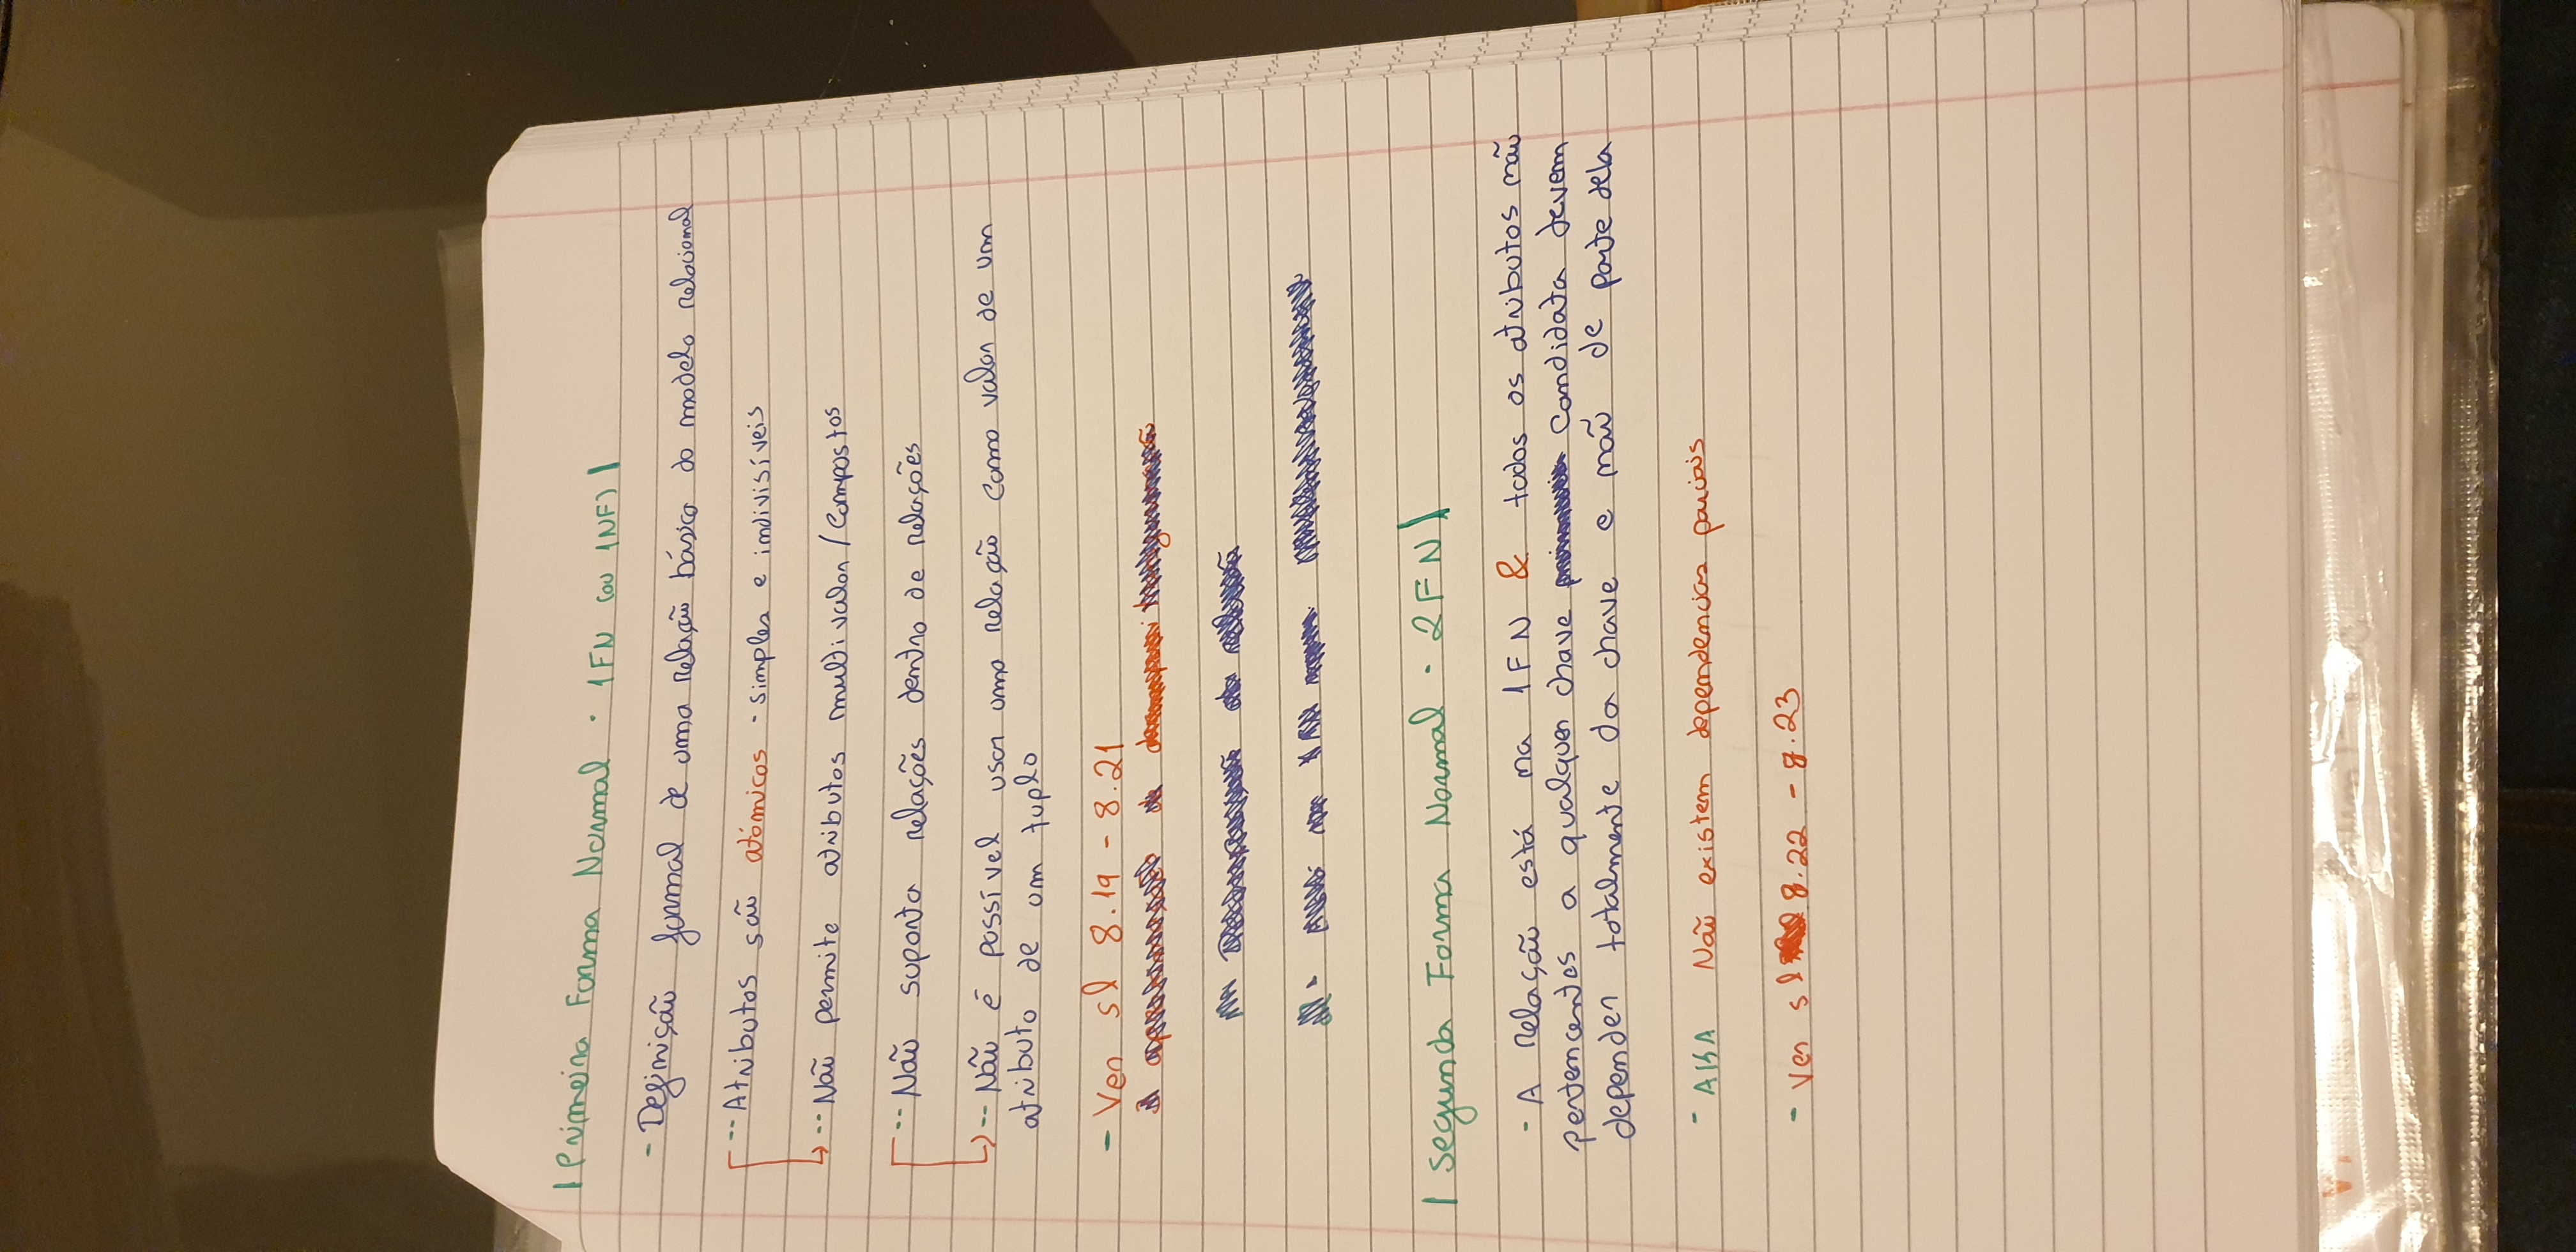 | Primeira Forma Normal · 1FN (ou 1NF) |
- Definição formal de uma relação básica do modelo relacional
-- Atributos são atómicos - simples e indivisíveis
-- Não permite atributos multivalor/compostos
-- Não suporta relações dentro de relações
-- Não é possível usar uma relação como valor de um
atributo de um tuplo
- Ver sl 8.19 - 8.21
| Segunda Forma Normal · 2FN |
- A relação está na 1FN & todos os atributos não
pertencentes a qualquer chave candidata devem
depender totalmente da chave e não de parte dela
- AKA Não existem dependencias parciais
- Ver sl 8.22 - 8.23